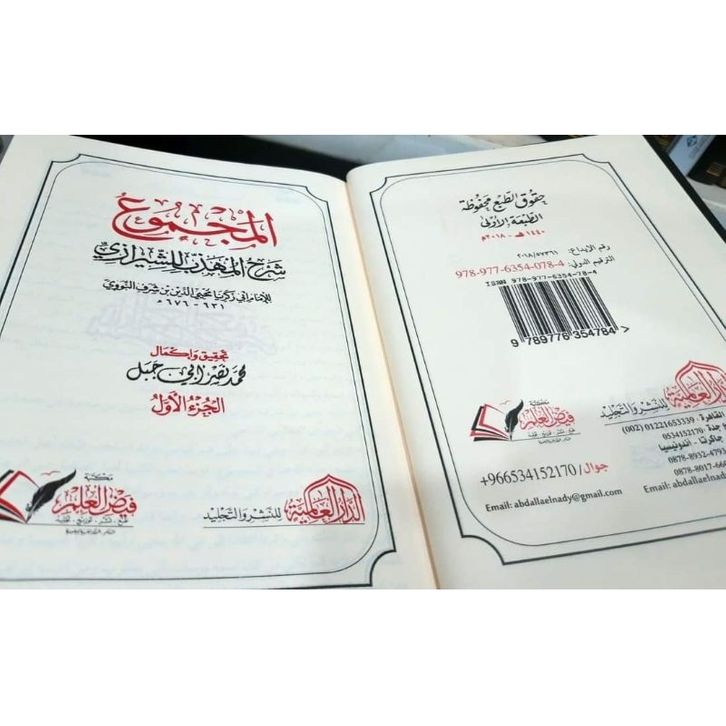 المجموع
شرح المهذب للشيرازي
للإمام أبي زكريا محيي الدين بن شرف النووي
٦٣١ - ٦٧٦ هـ
تحقيق وإكمال
محمد نصر أبي جبل
الجزء الأول
مكتبة
فيض العلم
طبع - نشر - توزيع - تجليد
الدار العالمية
للنشر والتجليد
حقوق الطبع محفوظة
الطبعة الأولى
١٤٤٠هـ - ٢٠١٨م
رقم الإيداع:
الترقيم الدولي: 978-977-6354-078-4
ISBN 978-977-6354-78-4
9 789776 354784
مكتبة
فيض العلم
طبع - نشر - توزيع - تجليد
الدار العالمية
للنشر والتجليد
القاهرة - 01221653339 (002)
جدة: 0534152170
جاكرتا - اندونيسيا
0878-8932-479
0878-8017-66
Email: abdallaelnad
جوال / 966534152170+
Email: abdallaelnady@gmail.com